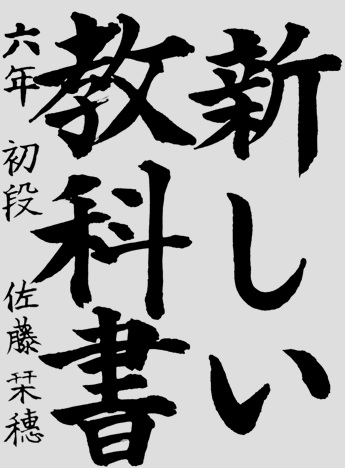 新しい
教科書
六年 初段 佐藤栞穂